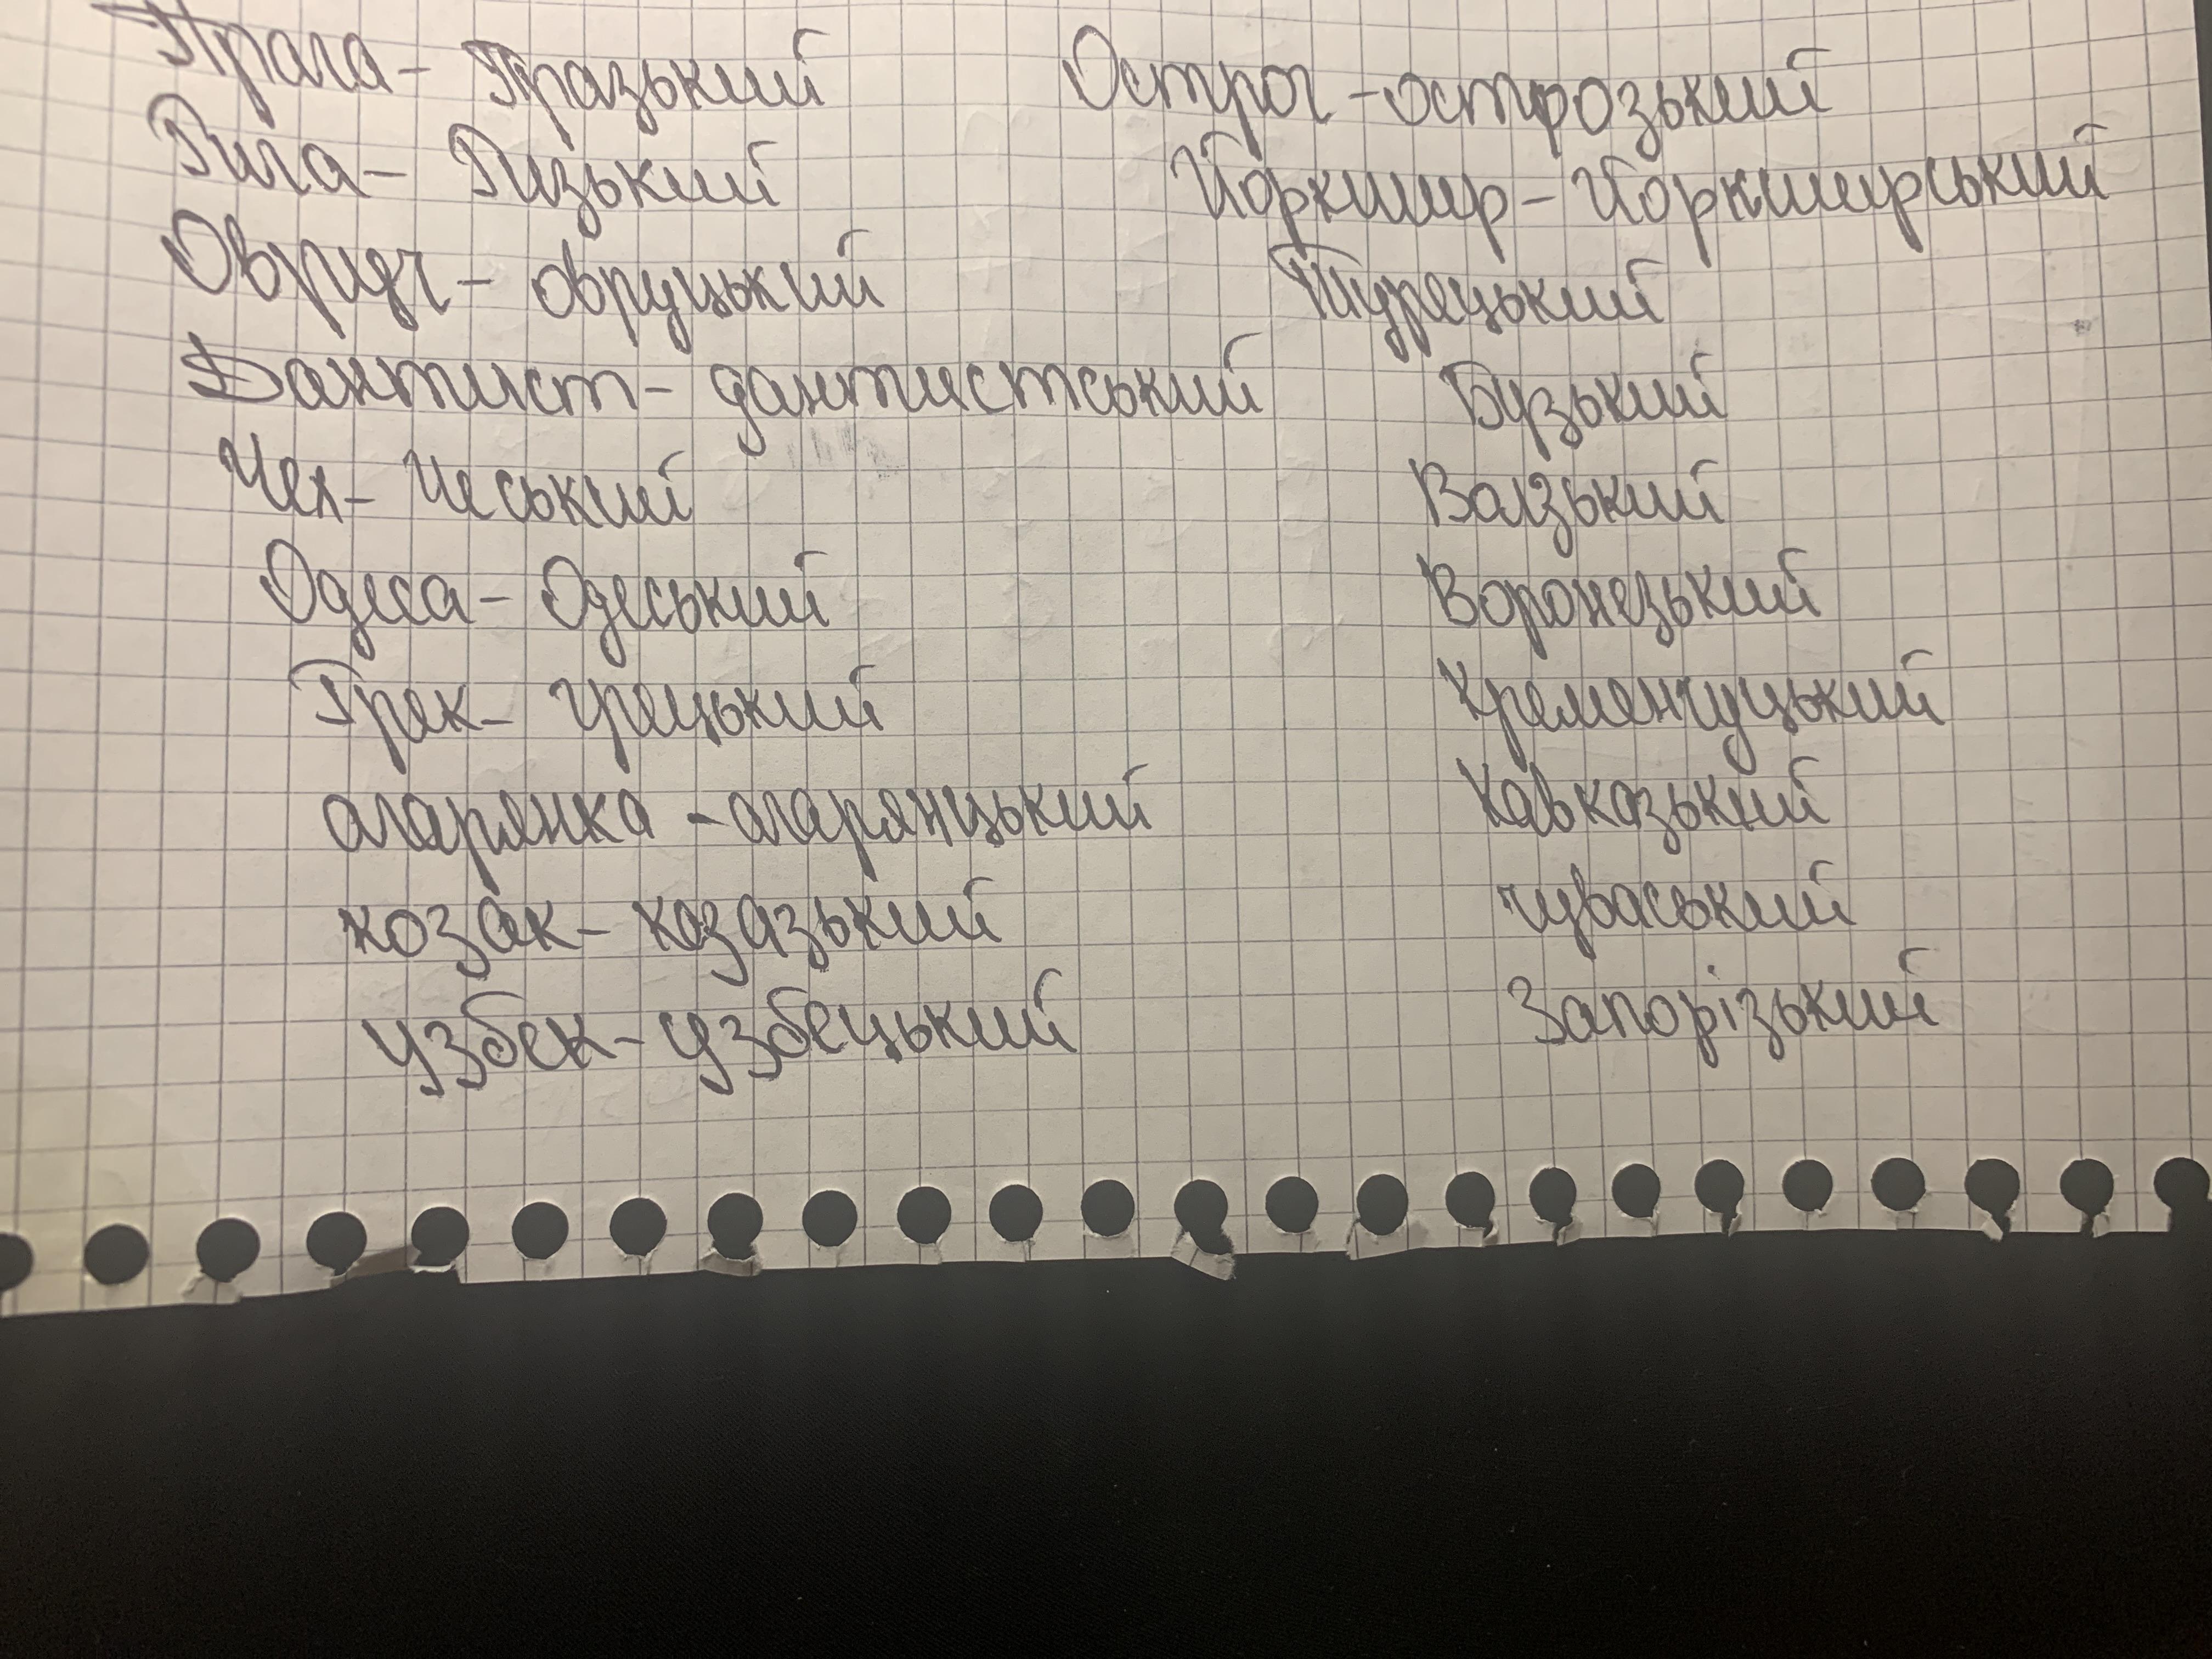 Прага - Празький
Рига - Ризький
Овруч - овруцький
Дантист - дантистський
Чех - Чеський
Одеса - Одеський
Грек - грецький
агарянка - агарянцький
козак - козазький
узбек - узбецький
Острог - острозький
Йоркшир - Йоркширський
Турецький
Бузький
Волзький
Воронезький
Кременчуцький
Кавказький
чуваський
Запорізький